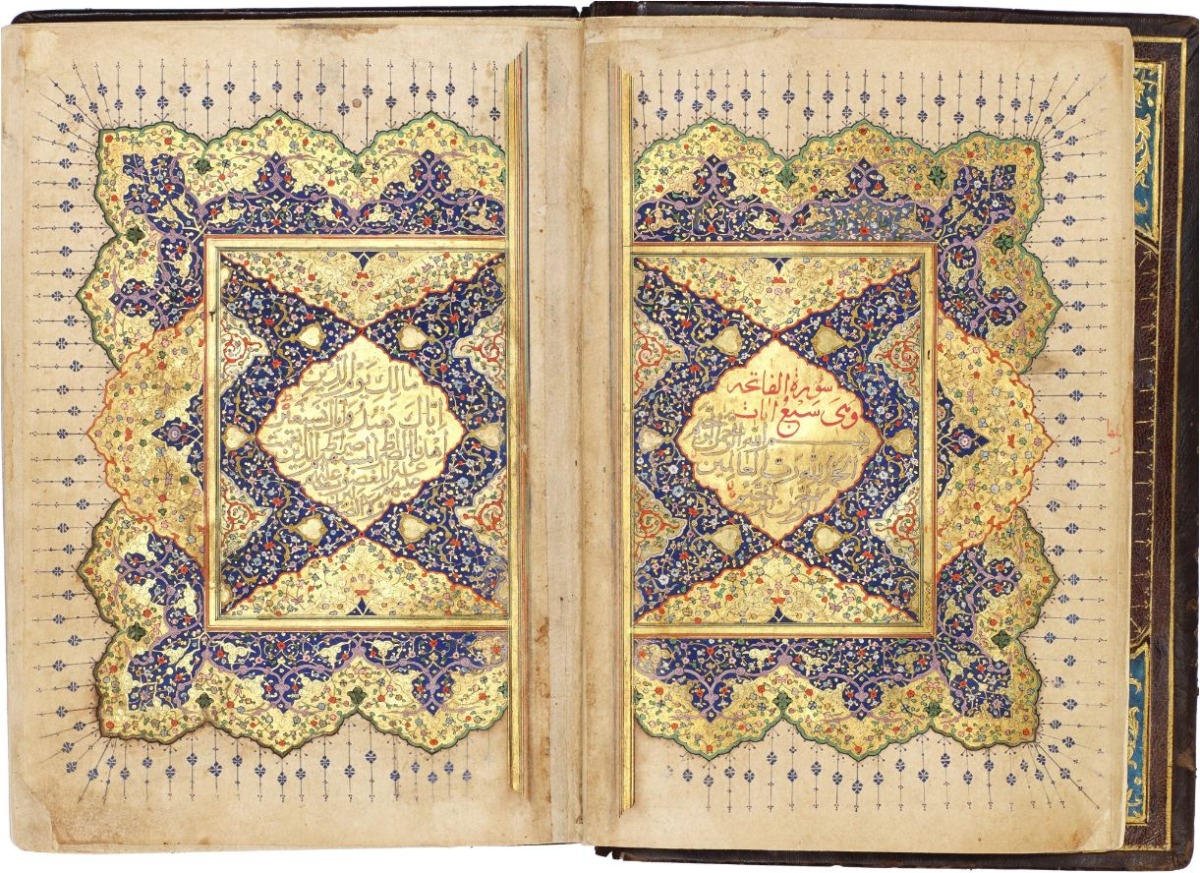 سورة الفاتحه
وهى سبع ايات
بسم الله الرحمن الرحيم
الحمد لله رب العالمين
الرحمن الرحيم
مالك يوم الدين
اياك نعبد واياك نستعين
اهدنا الصراط المستقيم صراط الذين انعمت
عليهم غير المغضوب عليهم
ولا الضالين